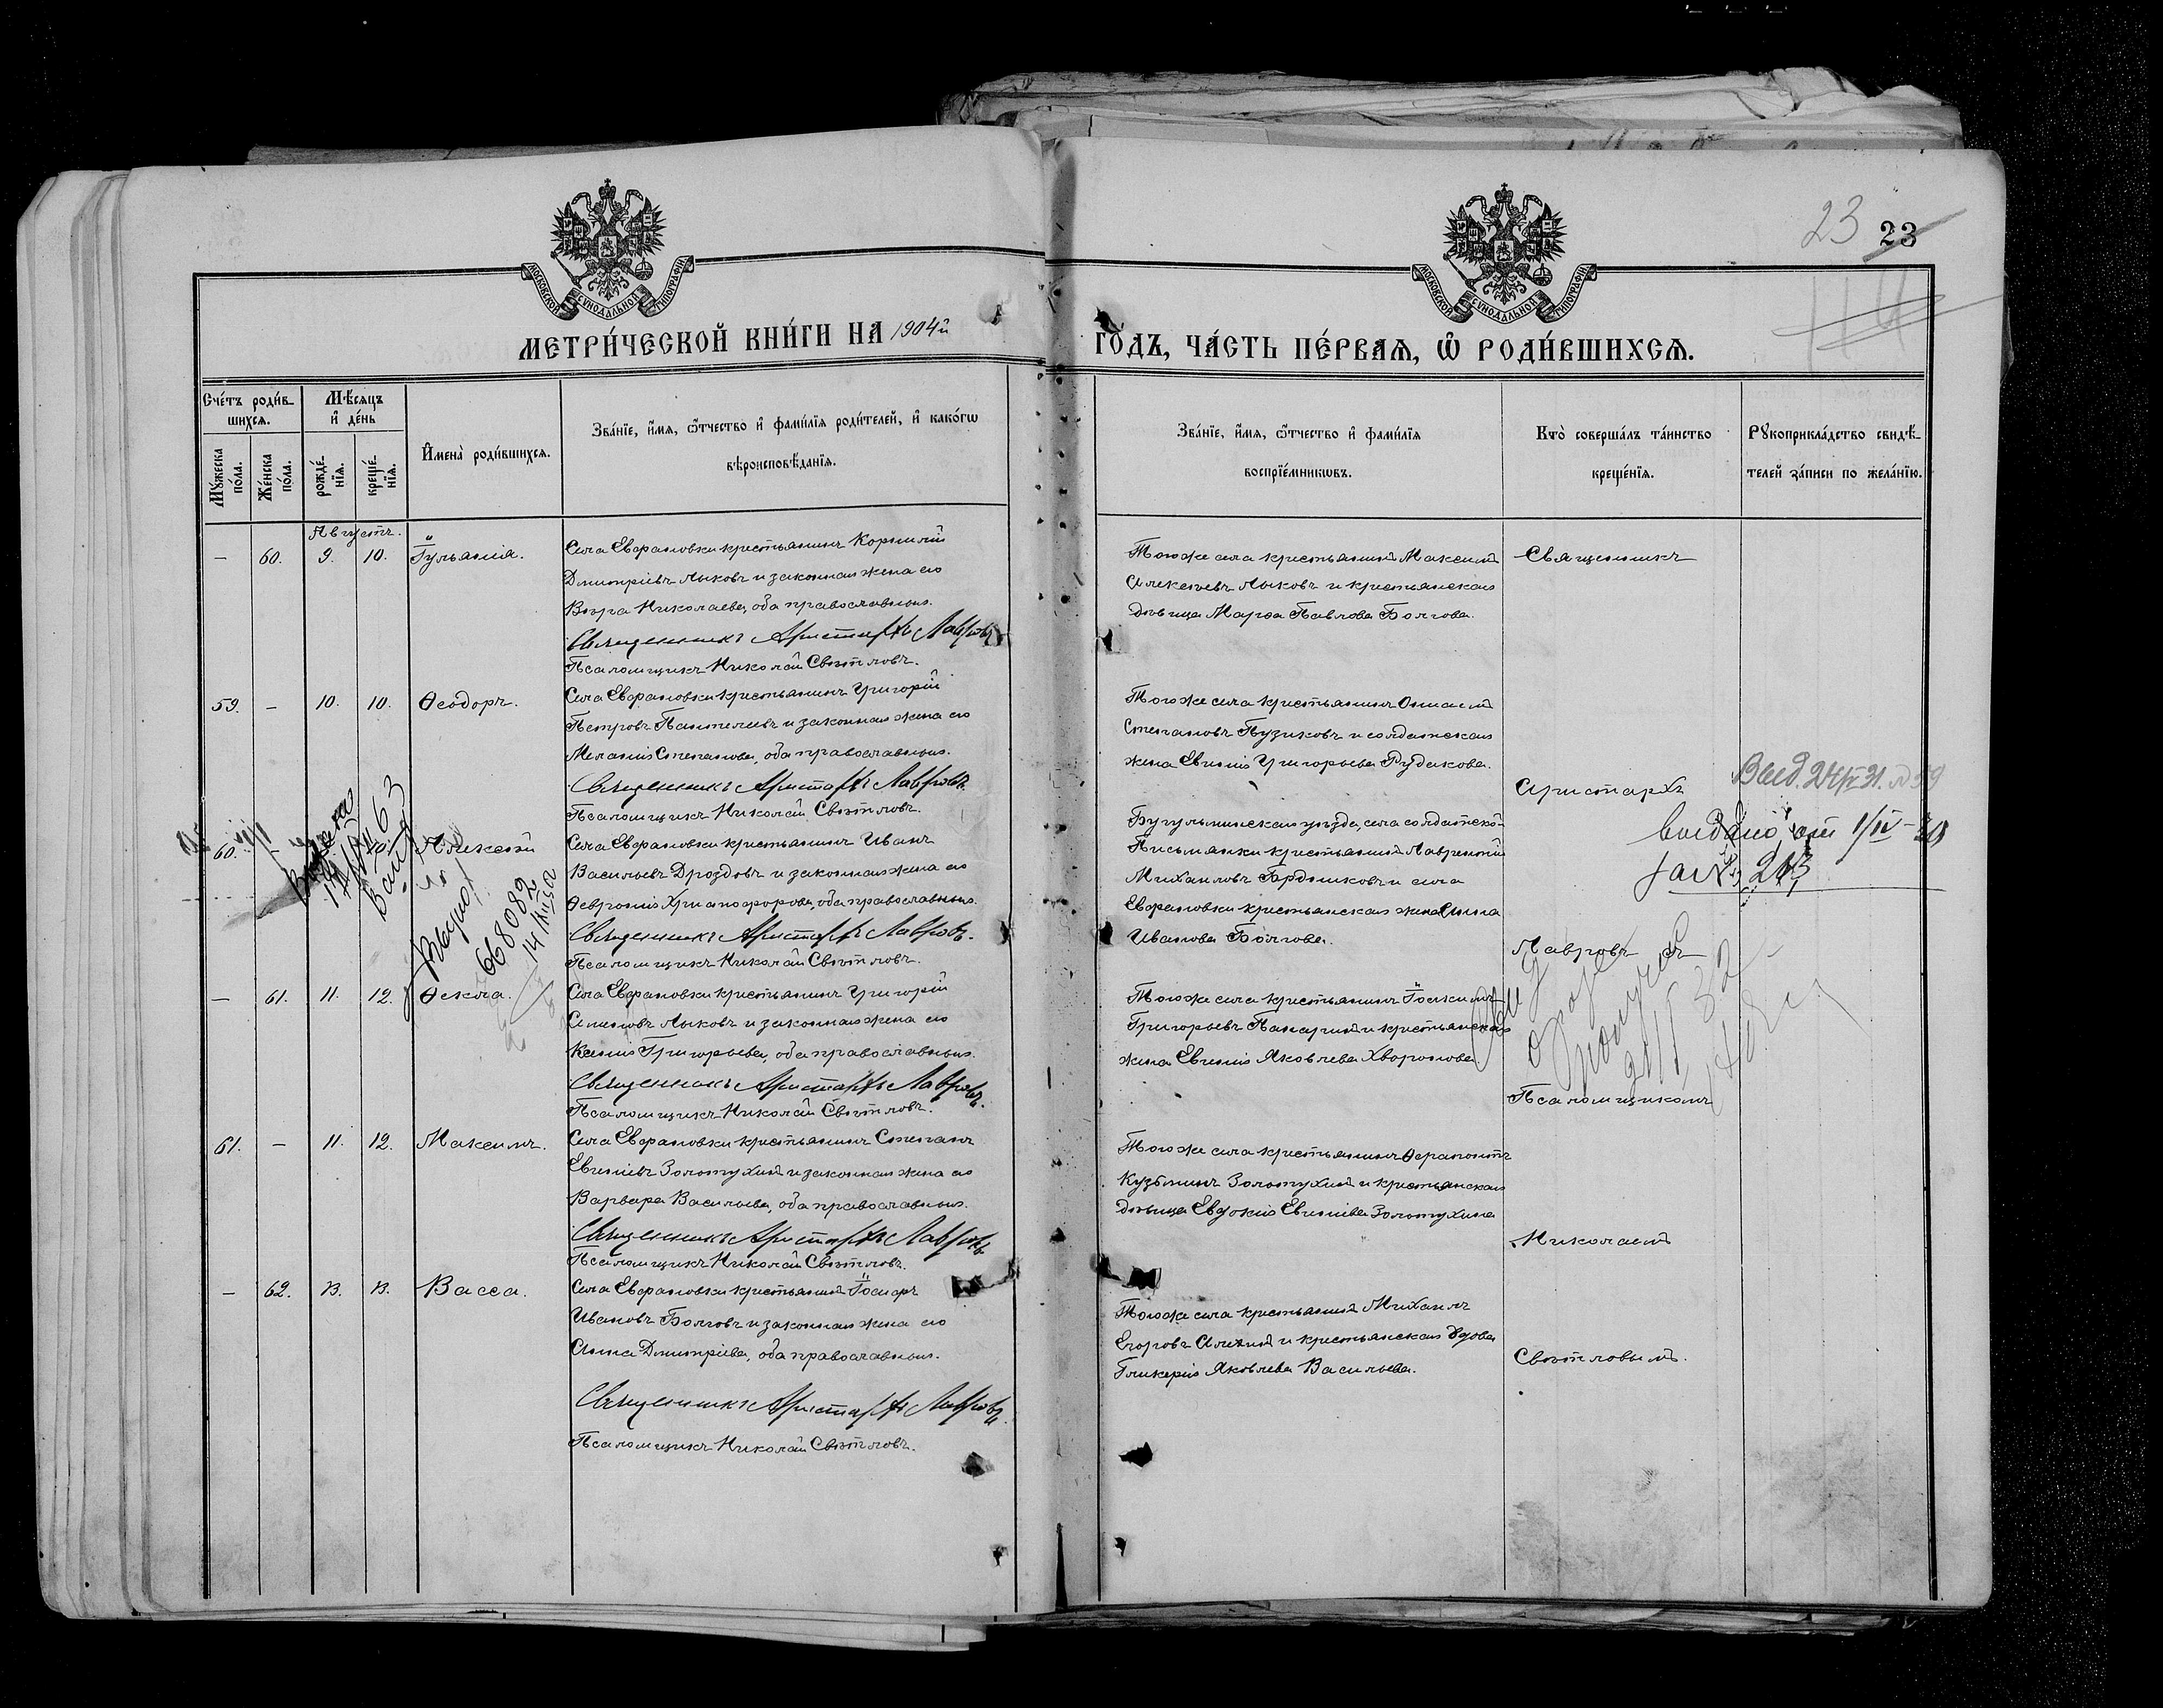 23 23
МОСКОВСКОЙ СѴНОДАЛЬНОЙ ТИПОГРАФІИ
МОСКОВСКОЙ СѴНОДАЛЬНОЙ ТИПОГРАФІИ
МЕТРИ́ЧЕСКОЙ КНИ́ГИ НА 1904й
ГО́ДЪ, ЧА́СТЬ ПЕ́РВАѦ, Ѡ РОДИ́ВШИХСѦ.
Сче́тъ роди́в-
шихсѧ.
Мꙋ́жеска по́ла.
Же́нска по́ла.
Мѣ́сѧцъ
и҆ де́нь
рожде́-
нїѧ.
креще́-
нїѧ.
И҆мена̀ роди́вшихсѧ.
Зва́нїе, и҆́мѧ, ѻ҆́тчество и҆ фами́лїѧ роди́телей, и҆ како́гѡ
вѣроисповѣ́данїѧ.
Зва́нїе, и҆́мѧ, ѻ҆́тчество и҆ фами́лїѧ
воспрїе́мникѡвъ.
Кто̀ соверша́лъ та́инство
креще́нїѧ.
Рꙋкоприкла́дство свидѣ́-
телей за́писи по жела́нїю.
Августъ.
— 60. 9. 10. Іульанія.
Села Евфановки крестьянинъ Корнилій
Дмитріевъ Лыковъ и законная жена его
Вѣра Николаева, оба православные.
Священникъ Аристархъ Лавровъ
Псаломщикъ Николай Свѣтловъ.
Тогоже села крестьянинъ Максимъ
Алексѣевъ Лыковъ и крестьянская
дѣвица Марѳа Павлова Болгова.
Священникъ
59. — 10. 10. Ѳеодоръ.
Села Евфановки крестьянинъ Григорій
Петровъ Пантелеевъ и законная жена его
Меланія Степанова, оба православные.
Священникъ Аристархъ Лавровъ.
Псаломщикъ Николай Свѣтловъ.
Тогоже села крестьянинъ
Степановъ Пузиковъ и солдатская
жена Евгенія Григорьева Рудакова.
Аристархъ
60. — 10. Алексѣй
Села Евфановки крестьянинъ Иванъ
Васильевъ Дроздовъ и законная жена его
Ѳевронія Христофорова, оба православные.
Священникъ Аристархъ Лавровъ.
Псаломщикъ Николай Свѣтловъ.
Бугульминскаго уѣзда, села солдатской
Письмянки крестьянинъ Лаврентій
Михаиловъ и села
Евфановки крестьянская жена Анна
Иванова Болгова.
Лавровъ съ
668082
выдано
— 61. 11. 12. Ѳекла.
Села Евфановки крестьянинъ Григорій
Семеновъ Лыковъ и законная жена его
Ксенія Григорьева, оба православные.
Священникъ Аристархъ Лавровъ.
Псаломщикъ Николай Свѣтловъ.
Тогоже села крестьянинъ Іоакимъ
Григорьевъ и крестьянская
жена Евгенія Яковлева Хворонова.
Псаломщикомъ
61. — 11. 12. Максимъ.
Села Евфановки крестьянинъ Степанъ
Евгеніевъ Золотухинъ и законная жена его
Варвара Васильева, оба православные.
Священникъ Аристархъ Лавровъ.
Псаломщикъ Николай Свѣтловъ.
Тогоже села крестьянинъ Ѳерапонтъ
Кузьминъ Золотухинъ и крестьянская
дѣвица Евдокія Евгеніева Золотухина
Николаемъ
— 62. 13. 13. Васса.
Села Евфановки крестьянинъ Іосифъ
Ивановъ Болговъ и законная жена его
Анна Дмитріева, оба православные.
Священникъ Аристархъ Лавровъ.
Псаломщикъ Николай Свѣтловъ.
Тогоже села крестьянинъ Михаилъ
Егоровъ и крестьянская вдова
Гликерія Яковлева Васильева.
Свѣтловымъ.